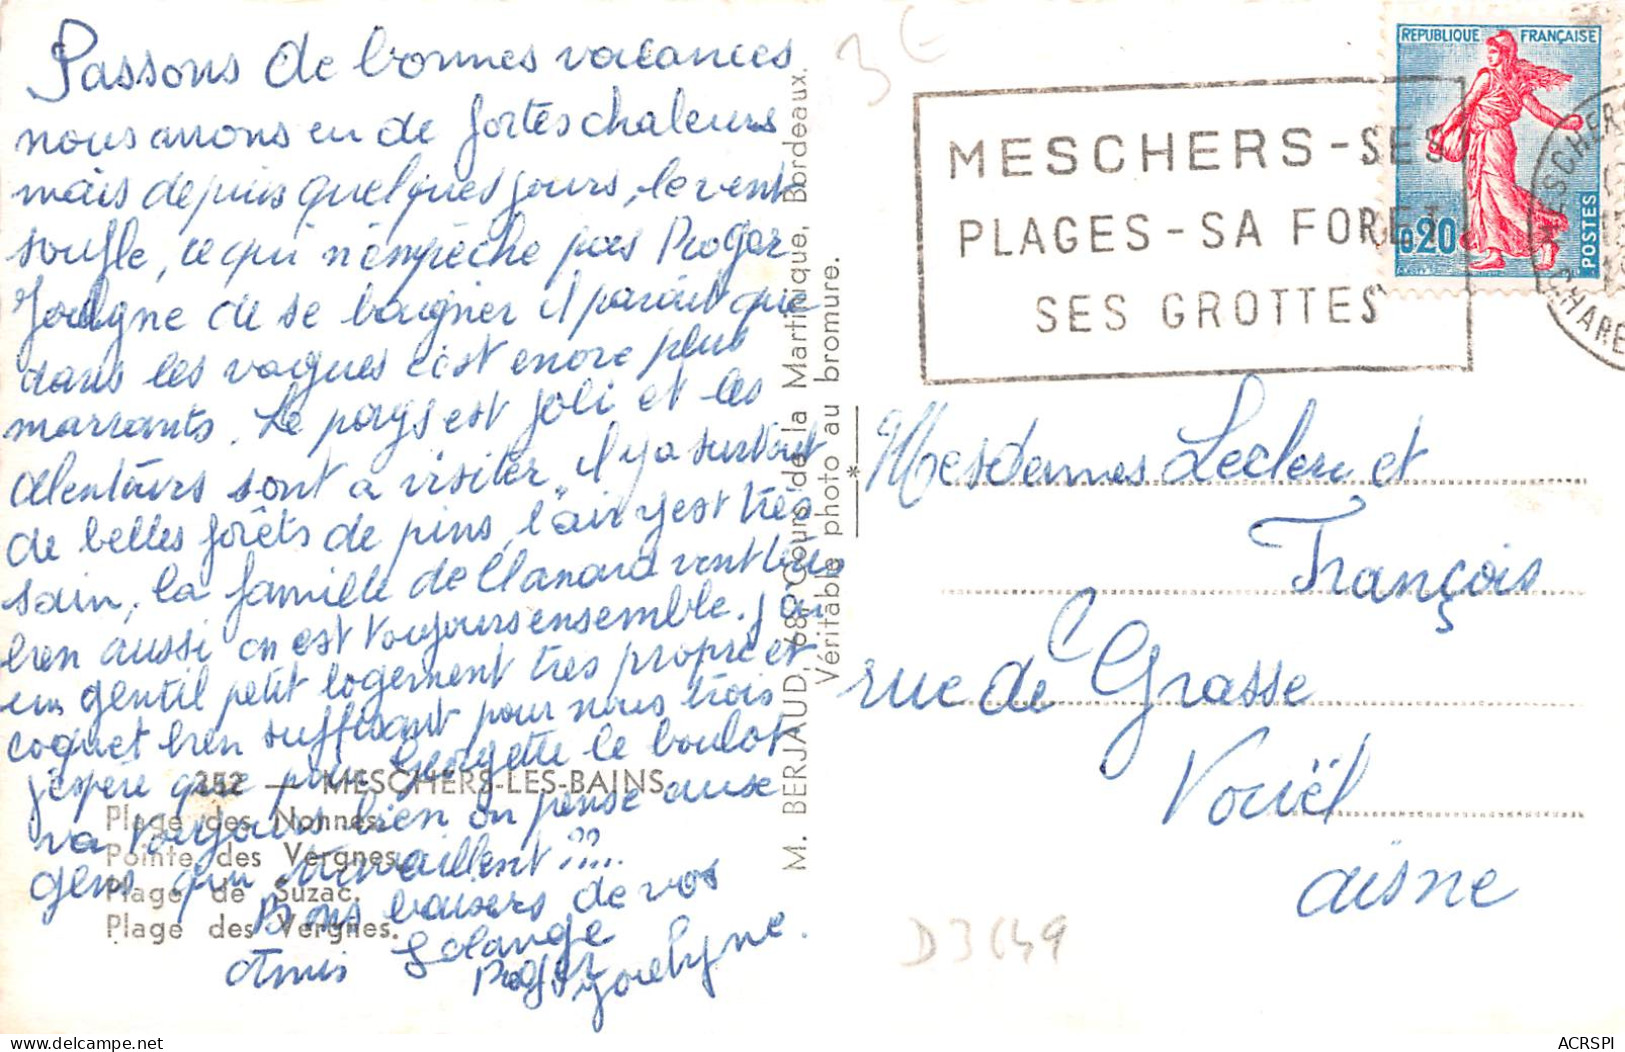 Passons de bonnes vacances
nous avons eu de fortes chaleurs
mais depuis quelques jours, le vent
souffle, ce qui n'empêche pas Roger
Joelyne de se baigner il parait que
dans les vagues c'est encore plus
marrants. Le pays est joli et les
alentours sont a visiter, il y a surtout
de belles forêts de pins, l'air y est très
sain, la famille de Clanard vont très
bien aussi on est toujours ensemble. J'ai
un gentil petit logement très propre et
coquet bien suffisant pour nous trois
j'espère que pour Georgette le boulot
va toujours bien on pense aux
gens qui travaillent ??....
Bons baisers de vos
Amis Solange
Roger Joelyne.
252 — MESCHERS-LES-BAINS
Plage des Nonnes.
Pointe des Vergnes.
Plage de Suzac.
Plage des Vergnes.
M. BERJAUD, 68, Cours de la Martinique, Bordeaux.
Véritable photo au bromure.
3€
MESCHERS - SES
PLAGES - SA FORET
SES GROTTES
REPUBLIQUE FRANÇAISE
0,20
POSTES
MESCHERS
CHARE
Mesdames Leclerc et
François
rue de Grasse
Vouël
aisne
D3649
ACRSPI